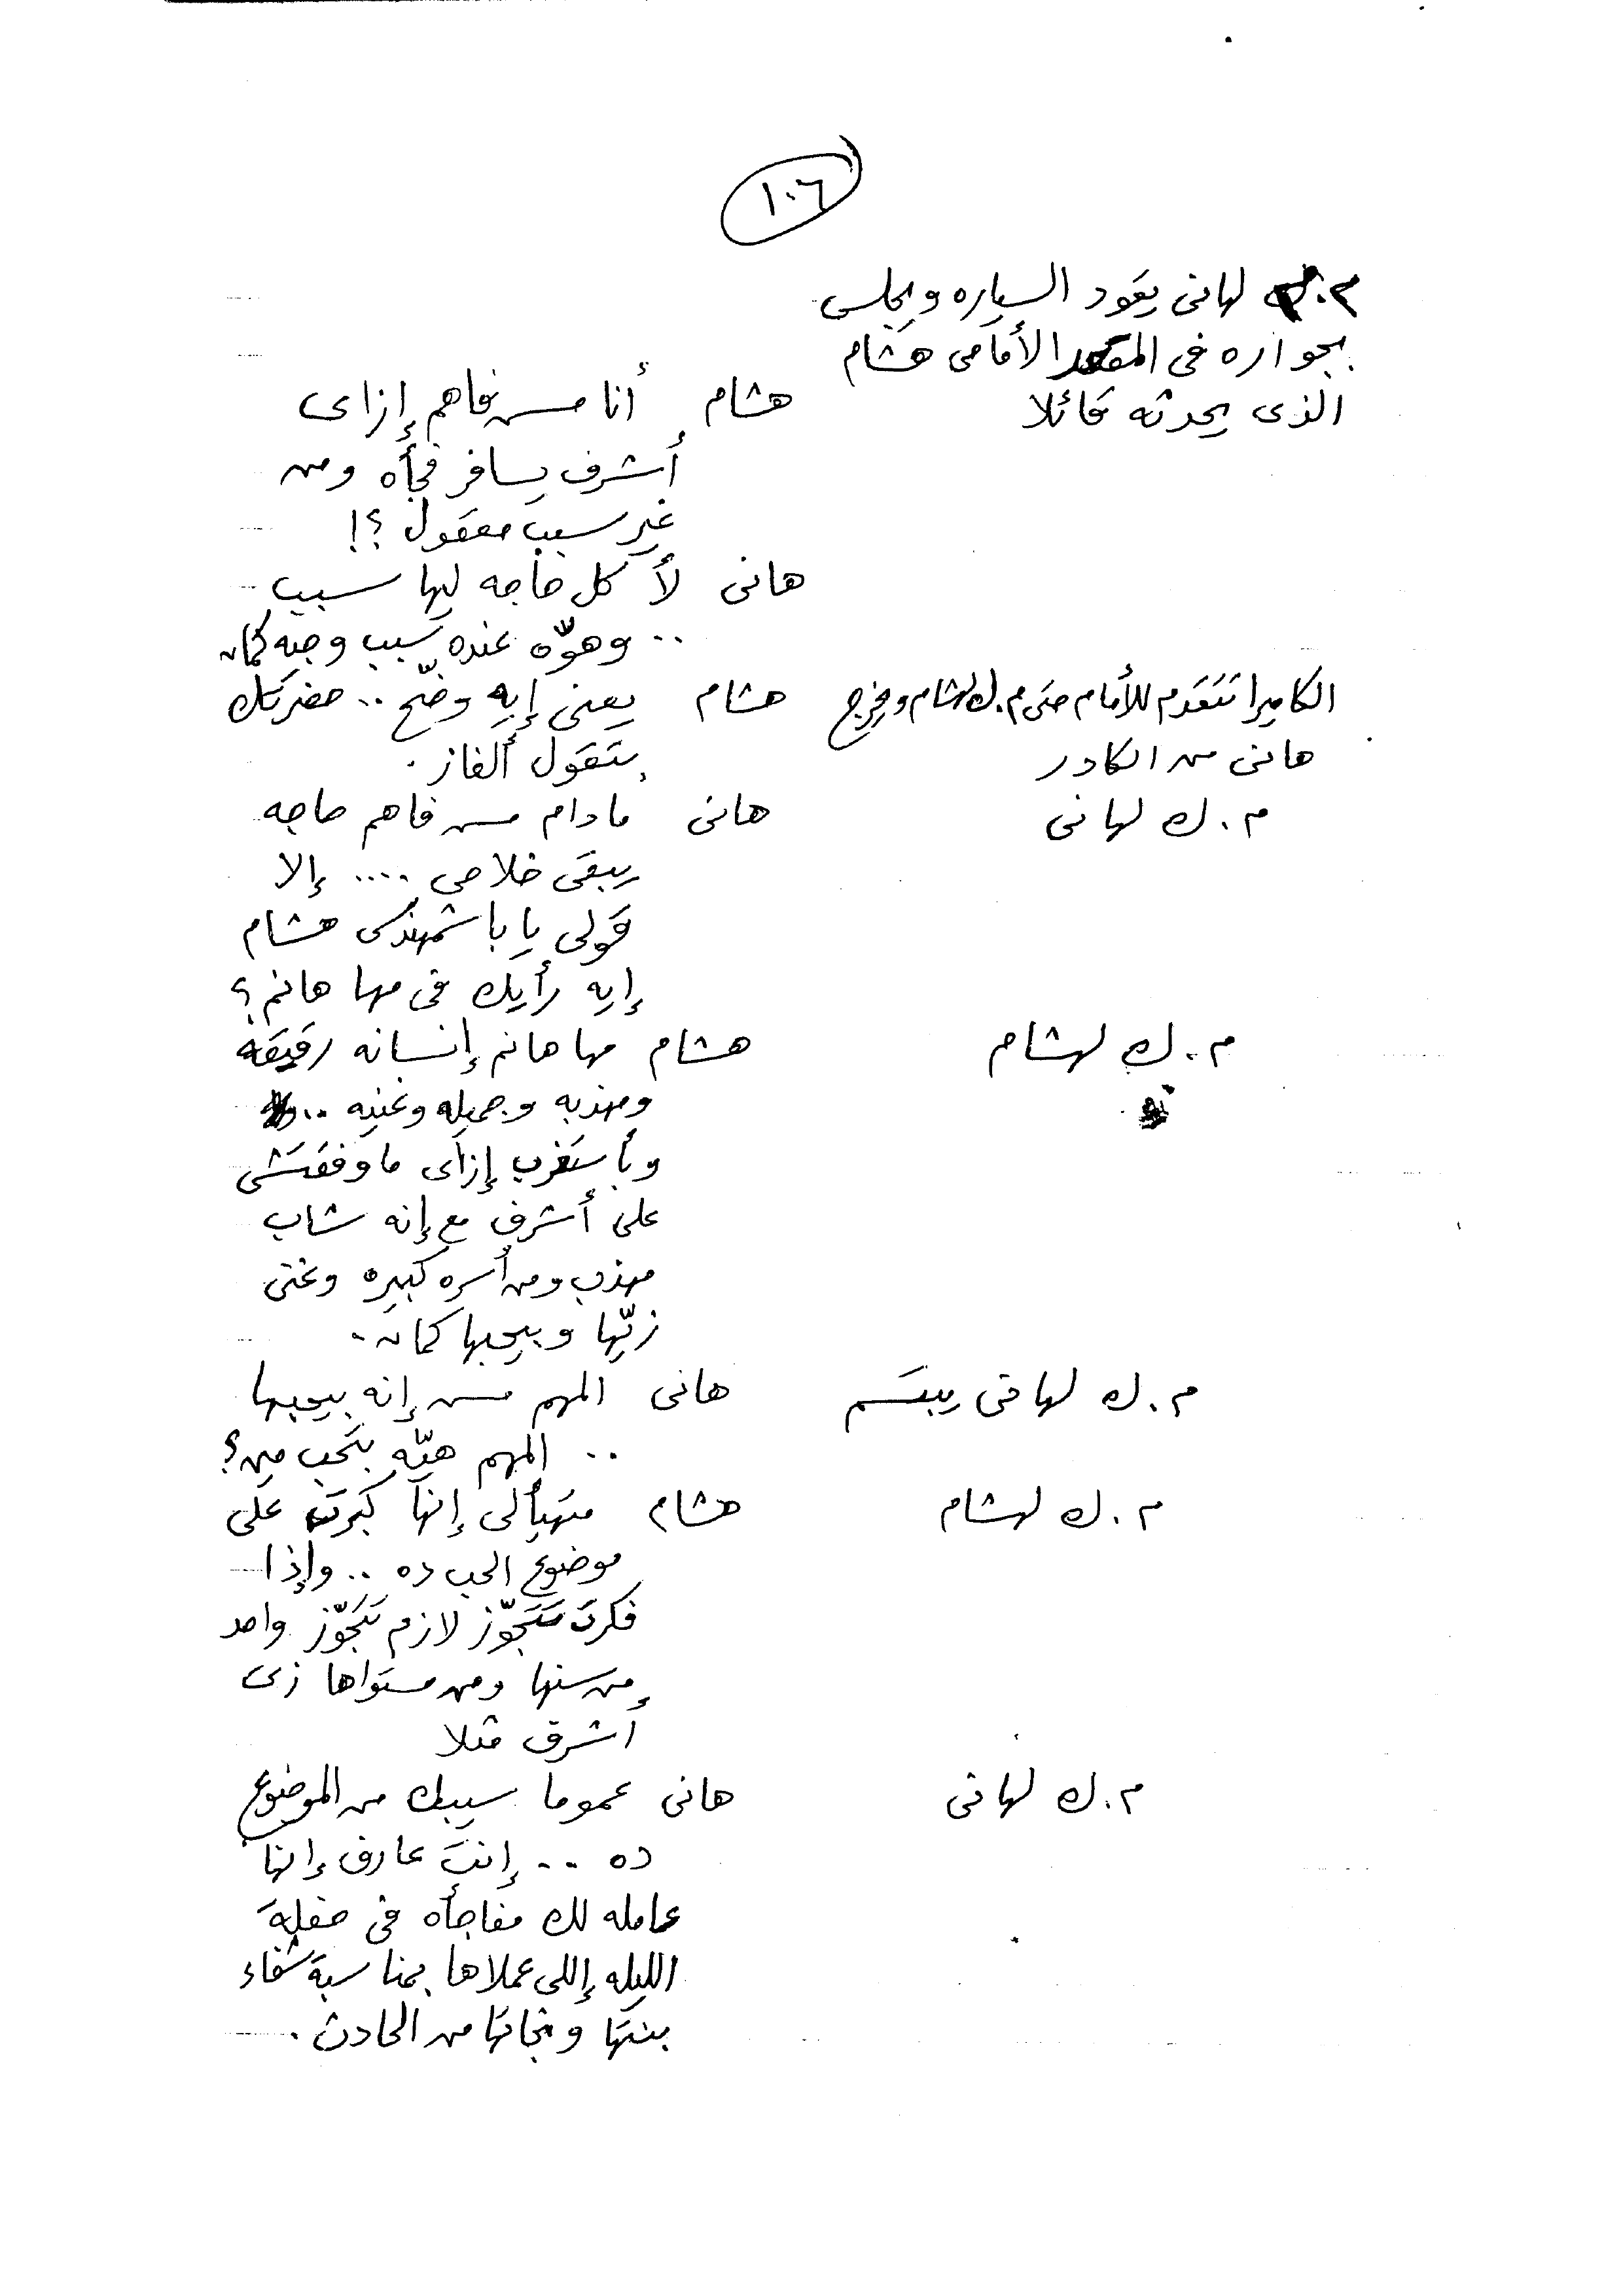 ١٠٦
م.م لهانى يقود السياره ويجلس
بجواره فى المقعد الأمامى هشام
الذى يحدثه قائلا
هشام أنا مش فاهم إزاى
أشرف يسافر فجأه ومن
غير سبب معقول ؟!
هانى لأ كل حاجه ليها سبب
.. وهوّه عنده سبب وجيه كمان
الكاميرا تتقدم للأمام حتى م.ك لهشام ويخرج
هانى من الكادر
هشام يعنى إيه وضّح .. حضرتك
بتقول ألغاز .
م . ك لهانى
هانى مادام مش فاهم حاجه
يبقى خلاص .... إلا
قولى يا باشمهندس هشام
إيه رأيك فى مها هانم ؟
م . ك لهشام
هشام مها هانم إنسانه رقيقه
ومهذبه وجميله وغنيه ..
وبأستغرب إزاى ماوفقتش
على أشرف مع إنه شاب
مهذب ومن أسره كبيره وغنى
زيّها وبيحبها كمان .
م . ك لهانى يبتسم
هانى المهم مش إنه بيحبها
.. المهم هيّه بتحب مين ؟
م . ك لهشام
هشام متهيألى إنها كبرت على
موضوع الحب ده .. وإذا
فكرت تتجوّز لازم تتجوّز واحد
من سنها ومن مستواها زى
أشرف مثلا
م . ك لهانى
هانى عموما سيبك من الموضوع
ده .. إنت عارف إنها
عامله لك مفاجأه فى حفلة
الليله إللى عملاها بمناسبة شفاء
بنتها ونجاتها من الحادث .